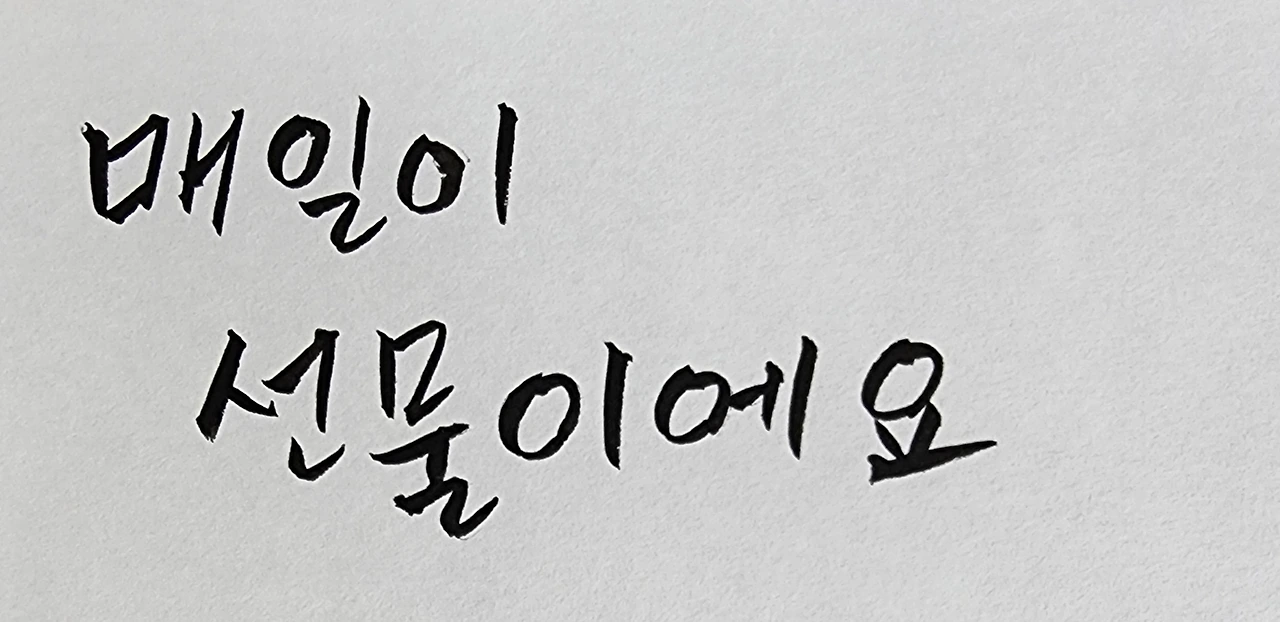 매일이
선물이에요